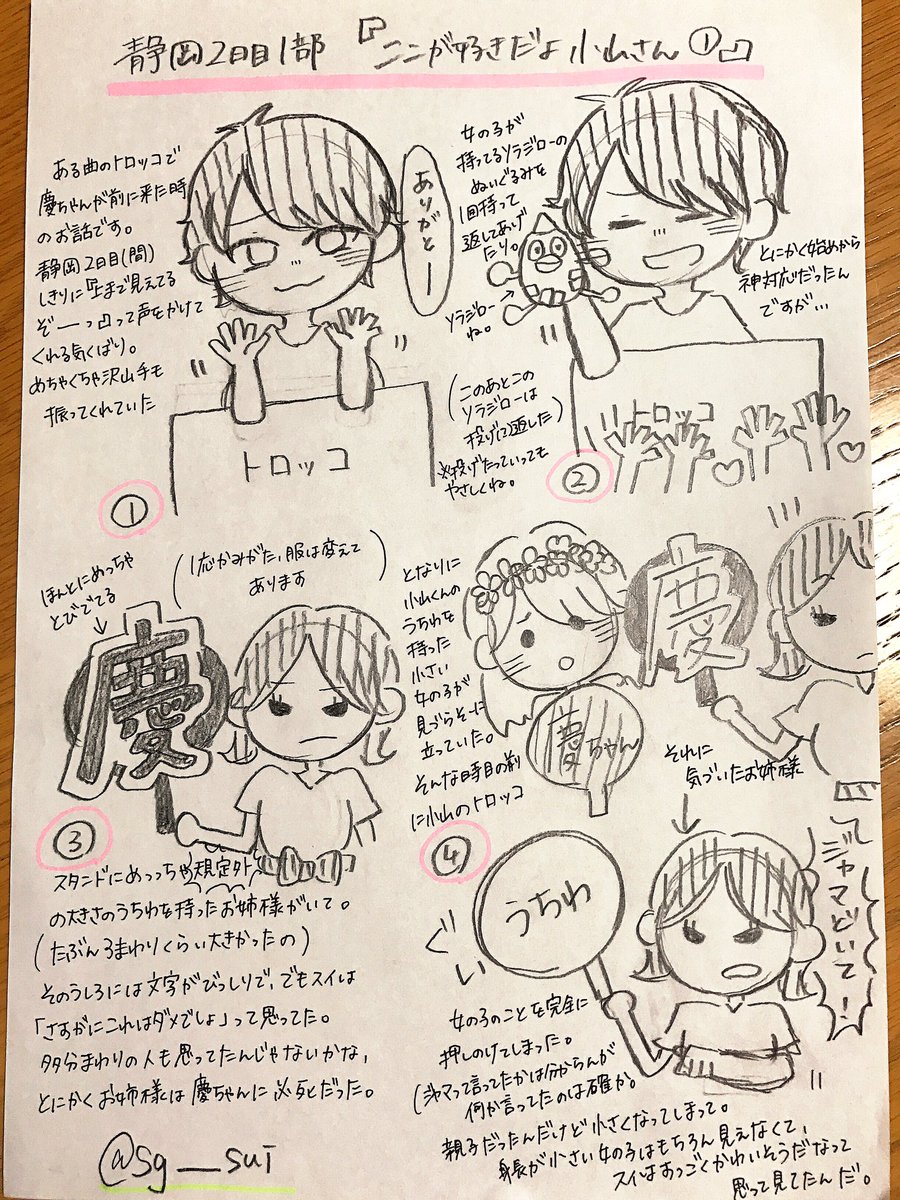 静岡2日目1部『ここが好きだよ小山さん①』
ある曲のトロッコで
慶ちゃんが前に来た時
のお話です。
静岡2日目(間)
しきりに『上まで見えてる
ぞーっ』って声をかけて
くれる気くばり。
めちゃくちゃ沢山手も
振ってくれていた
ありがとー
トロッコ
①
女の子が
持ってるソラジローの
ぬいぐるみを
1回持って
返してあげ
たり。
ソラジロー
ね。
とにかく始めから
神対応だったん
ですが…
(このあとこの
ソラジローは
投げて返した)
※投げたっていっても
やさしくね。
トロッコ
②
ほんとにめっちゃ
とびでてる
(1応かみがた、服は変えて
あります)
慶
③
スタンドにめっっちゃ規定外
の大きさのうちわを持ったお姉様がいて。
(たぶん3まわりくらい大きかったの)
そのうしろには文字がびっしりで、でもスイは
「さすがにこれはダメでしょ」って思ってた。
多分まわりの人も思ってたんじゃないかな、
とにかくお姉様は慶ちゃんに必死だった。
となりに
小山くんの
うちわを
持った
小さい
女の子が
見づらそーに
立っていた。
そんな時目の前
に小山のトロッコ
慶ちゃん
慶
それに
気づいたお姉様
④
うちわ
ぐい
ジャマどいて!
女の子のことを完全に
押しのけてしまった。
(ジャマって言ってたかは分からんが
何か言ってたのは確か。
親子だったんだけど小さくなってしまって。
身長が小さい女の子はもちろん見えなくて、
スイはすっごくかわいそうだなって
思って見てたんだ。
@sg__sui